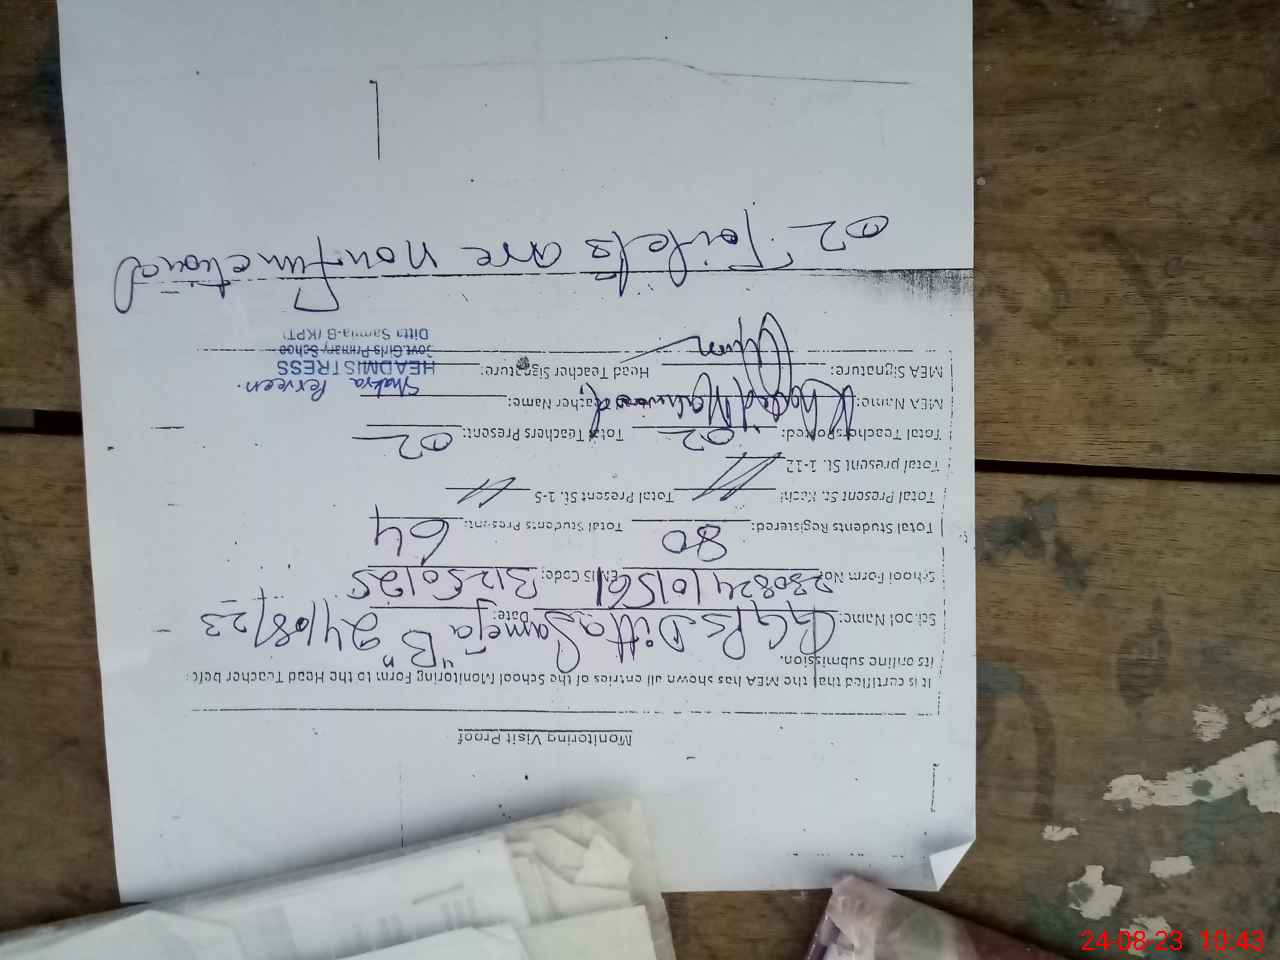 Monitoring Visit Proof
It is certified that the MEA has shown all entries of the School Monitoring Form to the Head Teacher before
its online submission.
School Name: GGPS Ditta Sameja "B" Date: 24/08/23
School Form No: 230824101561 EMIS Code: 31250125
Total Students Registered: 80 Total Students Present: 64
Total Present St. Kachi: Total Present St. 1-5
Total present St. 1-12
Total Teachers Posted: 02 Total Teachers Present: 02
MEA Name: Mahmood Teacher Name: Shakra Perveen.
MEA Signature: Head Teacher Signature: HEADMISTRESS
Govt.Girls Primary School
Ditta Samija-B (KPT)
02 Toilets are nonfunctional
24-08-23 10:43